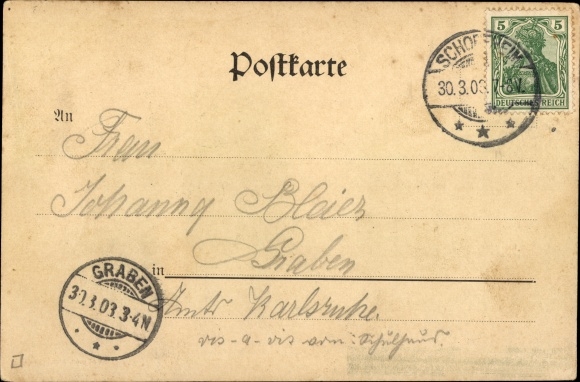 Postkarte
SCHOPFHEIM
30.3.03. 7-8V.
5
DEUTSCHES REICH
An
Frau
Johanna Blaier
in Graben
Amts Karlsruhe.
vis-a-vis vom Schulhaus.
GRABEN
30.3.03.3-4N